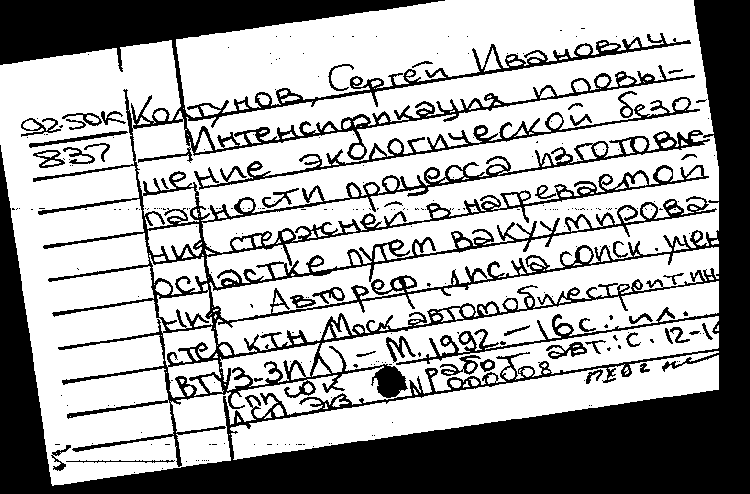 Колтунов, Сергей Иванович.
Интенсификация и повы-
92-50К
837
шение экологической безо-
пасности процесса изготовле-
ния стержней в нагреваемой
оснастке путем вакуумирова-
ния. Автореф. дис. на соиск. учен
степ к.т.н / Моск автомобилестроит. ин-
(ВТУЗ-ЗИЛ). - М., 1992. - 16 с.: ил.
Список работ авт.: с. 12-14
ДСП Экз. N 000008.